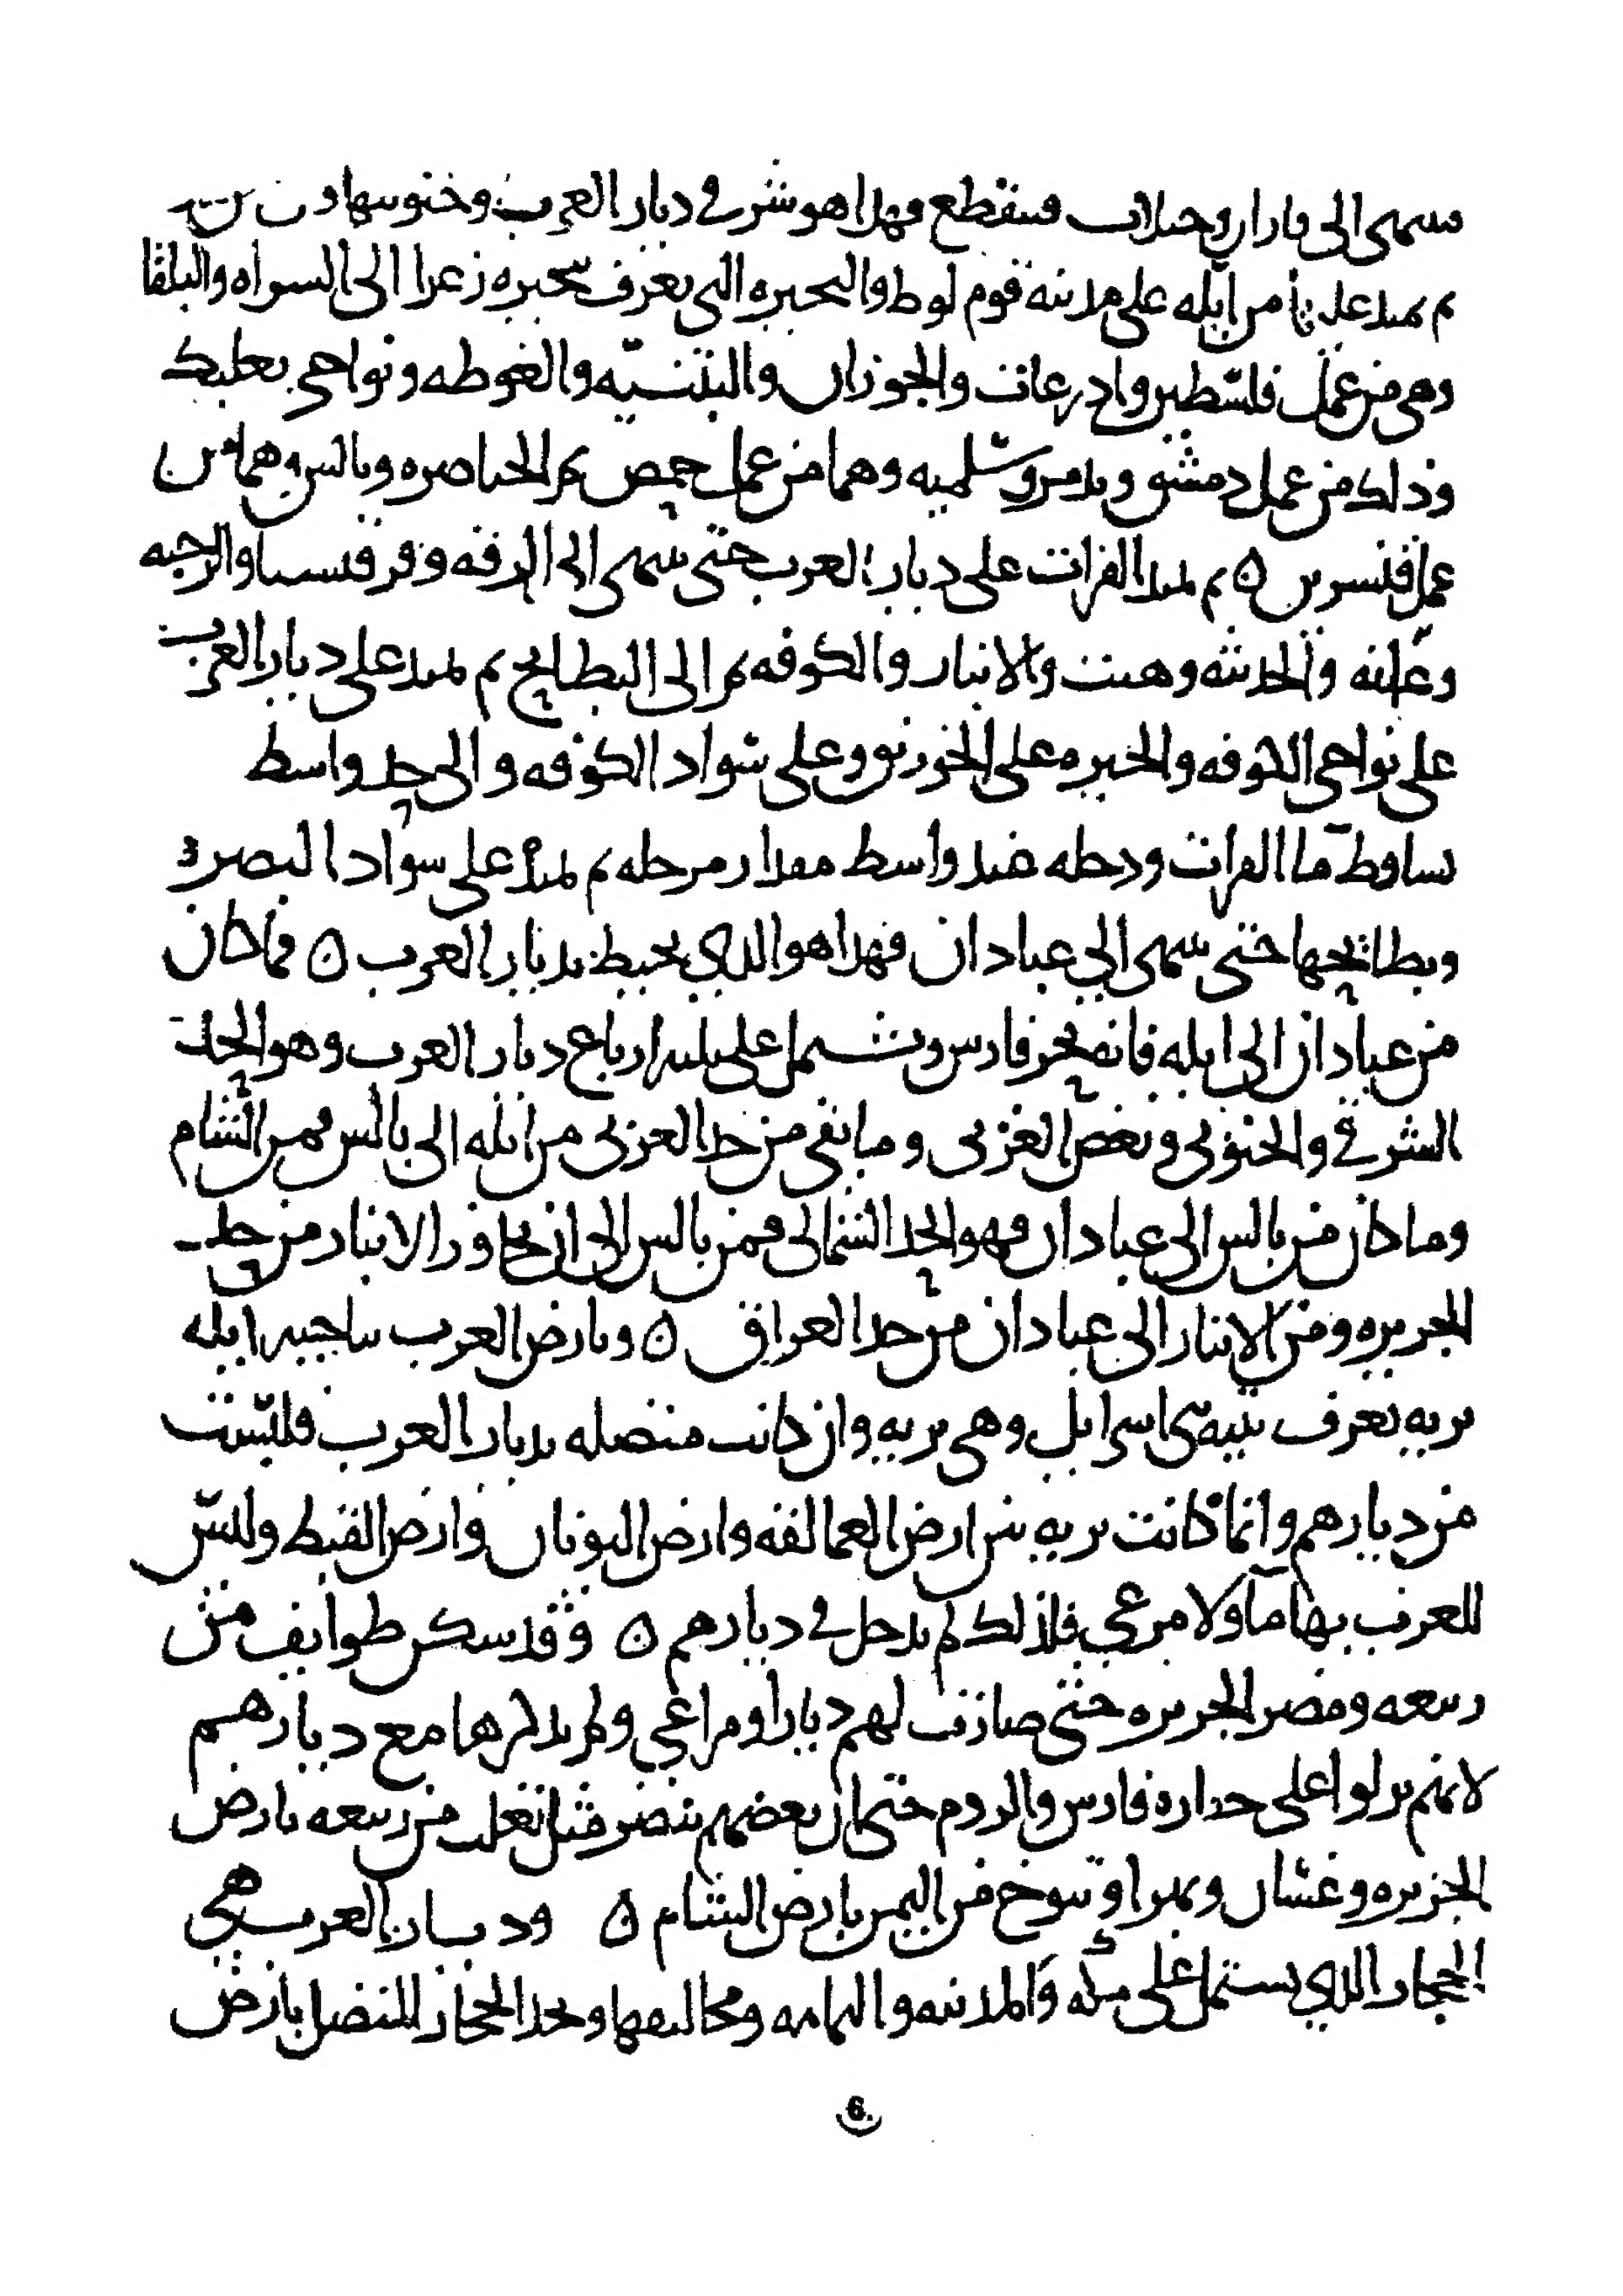 فينتهي الى فاران وجبلات فينقطع فهذا هو شرقي ديار العرب وجنوبيها و
ثم يمتد عليها من ايله على مدينه قوم لوط والبحيره التي تعرف ببحيره زغر الى الشراه والبلقا
وهي من عمل فلسطين واذرعات والحوران والبثنيه والغوطه ونواحي بعلبك
وذلك من عمل دمشق وتدمر وسلميه وهما من عمل حمص ثم الخناصره وبالس وهما من
عمل قنسرين ٥ ثم يمتد الفرات على ديار العرب حتى ينتهي الى الرقه وقرقيسيا والرحبه
وعانه والحديثه وهيت والانبار والكوفه ثم الى البطايح ثم يمتد على ديار العرب
على نواحي الكوفه والحيره على الخورنق وعلى سواد الكوفه والى حد واسط
ما الفرات ودجله عند واسط مقدار مرحله ثم يمتد على سواد البصره
وبطائحها حتى ينتهي الى عبادان فهذا هو الذي يحيط بديار العرب ٥ فما كان
من عبادان الى ايله فانه بحر فارس ويشتمل على ثلثه ارباع ديار العرب وهو الحد
الشرقي والجنوبي وبعض الغربي وما بقي من حد الغربي من ايله الى بالس فمن الشام
وما كان من بالس الى عبادان فهو الحد الشمالي فمن بالس الى ان تجاوز الانبار من حد
الجزيره ومن الانبار الى عبادان من حد العراق ٥ وبارض العرب بناحيه ايله
بريه تعرف بتيه بني اسرايل وهي بريه وان كانت متصله بديار العرب فليست
من ديارهم وانما كانت بريه بين ارض العمالقه وارض اليونان وارض القبط وليس
للعرب بها مآ ولا مرعي فلذلك لم يدخل في ديارهم ٥ وقد سكن طوايف من
ربيعه ومضر الجزيره حتى صارت لهم ديارا ومراعي ولم نذكرها مع ديارهم
لانهم نزلوا على خفاره فارس والروم حتى ان بعضهم تنصر مثل تغلب من ربيعه بارض
الجزيره وغسان وبهرا وتنوخ من اليمن بارض الشام ٥ وديار العرب هي
الحجاز الذي يشتمل على مكه والمدينه واليمامه ومخاليفها ونجد الحجاز المتصل بارض
6